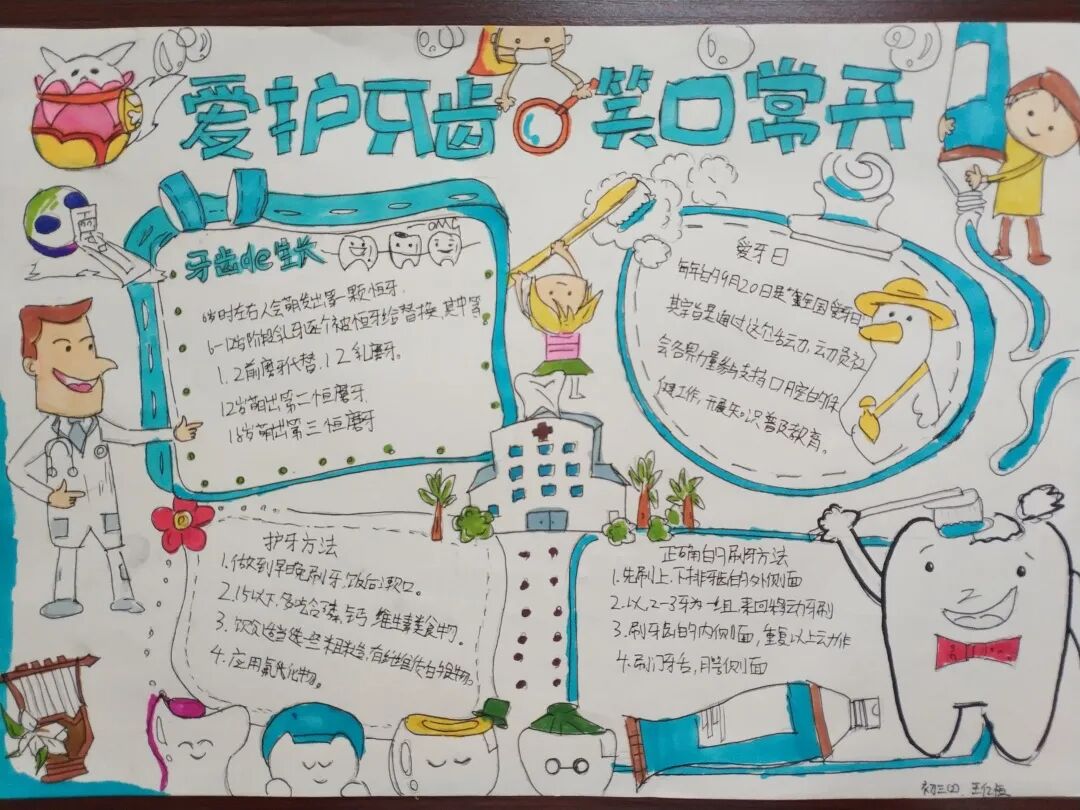 爱护牙齿 笑口常开
牙齿de生长
6岁时左右人会萌发出第一颗恒牙.
6-12岁阶段乳牙逐个被恒牙给替换,其中第
1.2前磨牙代替.1.2乳磨牙。
12岁萌出第二恒磨牙
18岁萌出第三恒磨牙
爱牙日
每年的9月20日是"全国爱牙日
其宗旨是通过这个活动,动员社
会各界力量参与支持口腔的保
健工作,开展知识普及教育。
护牙方法
1.做到早晚刷牙,饭后漱口。
2.15以下,多吃含磷,钙,维生素类食物。
3.饮食适当选些粗糙,有纤维质的食物。
4.应用氟化物。
正确的刷牙方法
1.先刷上.下排牙齿的外侧面
2.以2-3牙为一组,来回移动牙刷
3.刷牙齿的内侧面,重复以上动作
4.刷门牙舌,腭侧面
初三(2).王